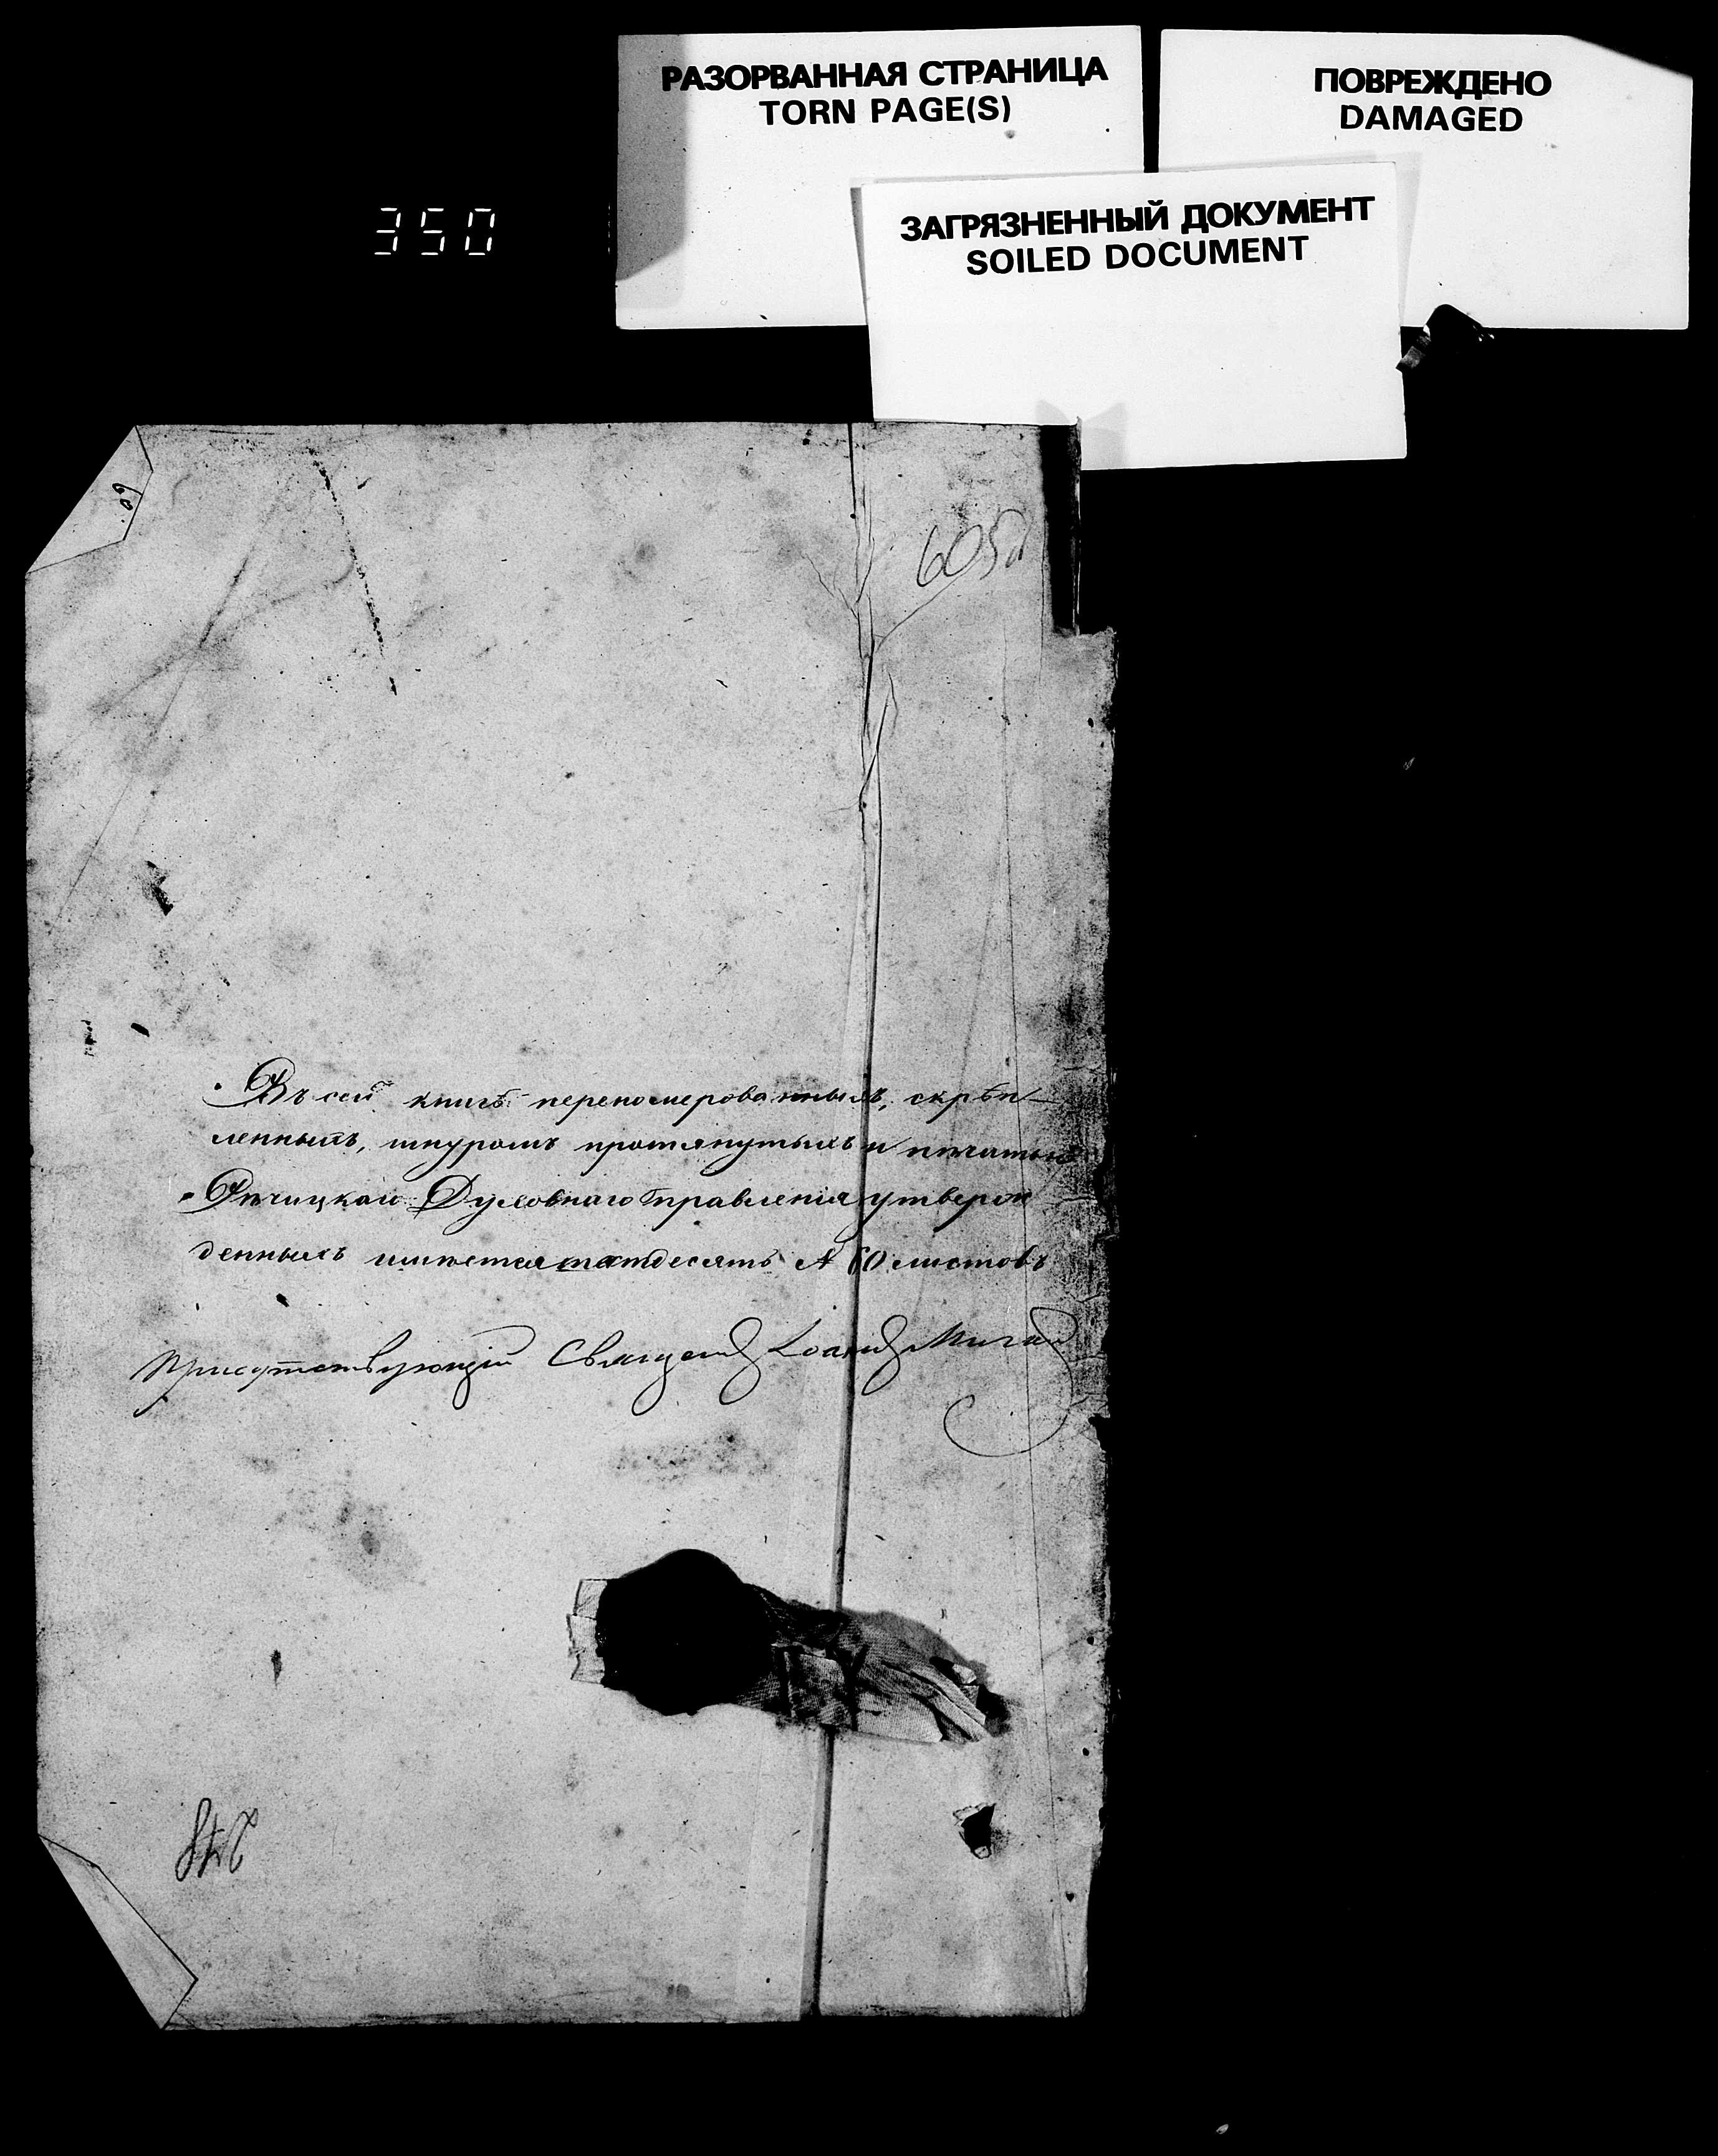 РАЗОРВАННАЯ СТРАНИЦА
TORN PAGE(S)
ПОВРЕЖДЕНО
DAMAGED
ЗАГРЯЗНЕННЫЙ ДОКУМЕНТ
SOILED DOCUMENT
350
60.
605
Въ сей книгѣ перепомерованныхъ, скрѣп
ленныхъ, шнуромъ протянутыхъ и печатью
Рѣчицкаго Духовнаго Правленія утверж
денныхъ листовъ
Присутствующій Священ